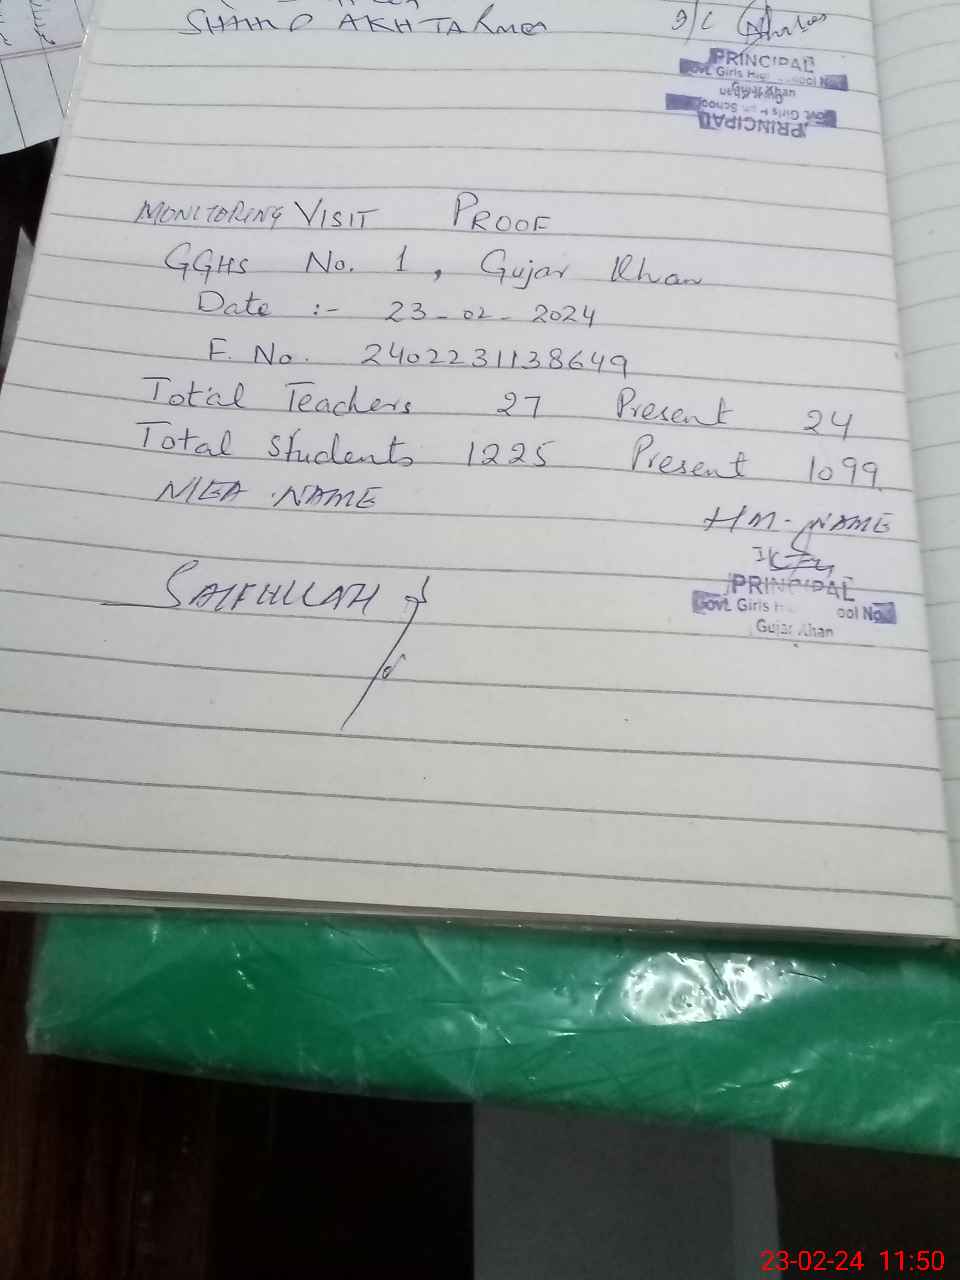 SHAHID AKHTAR MEA
I/C
PRINCIPAL
Govt. Girls High School No.
Gujar Khan
Govt. Girls High School
PRINCIPAL
MONITORING VISIT PROOF
GGHS No. 1, Gujar Khan
Date :- 23-02-2024
F. No. 2402231138649
Total Teachers 27 Present 24
Total Students 1225 Present 1099
MEA NAME
HM-NAME
SAIFULLAH
PRINCIPAL
Govt. Girls H ool No.
Gujar Khan
23-02-24 11:50